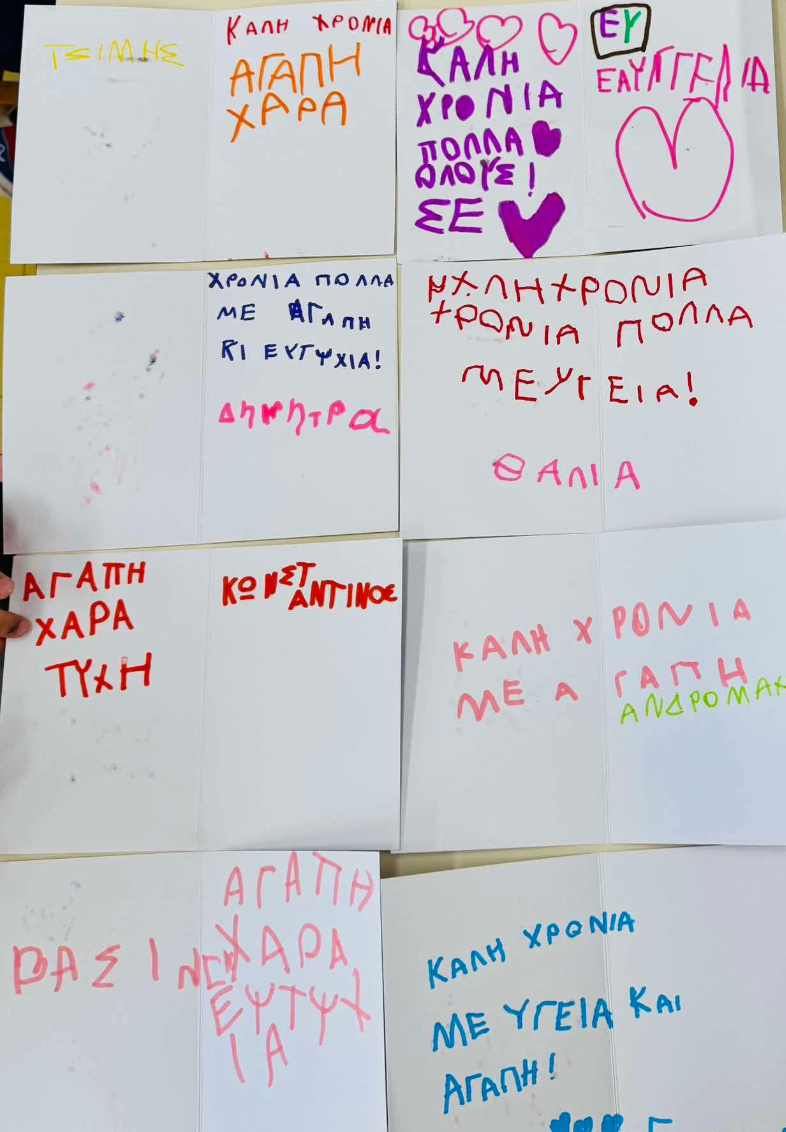 ΤΣΙΜΗΣ
ΚΑΛΗ ΧΡΟΝΙΑ
ΑΓΑΠΗ
ΧΑΡΑ
ΚΑΛΗ
ΧΡΟΝΙΑ
ΠΟΛΛΑ
ΟΛΟΥΣ!
ΣΕ
ΕΥ
ΕΑΥΓΓΕΛΙΑ
ΧΡΟΝΙΑ ΠΟΛΛΑ
ΜΕ ΑΓΑΠΗ
ΚΙ ΕΥΤΨΧΙΑ!
ΔΗΜΗΤΡΑ
ΚΑΛΗ ΧΡΟΝΙΑ
ΧΡΟΝΙΑ ΠΟΛΛΑ
ΜΕ ΥΓΕΙΑ!
ΘΑΛΙΑ
ΑΓΑΠΗ
ΧΑΡΑ
ΤΥΧΗ
ΚΩΝΣΤ
ΑΝΤΙΝΟΣ
ΚΑΛΗ ΧΡΟΝΙΑ
ΜΕ ΑΓΑΠΗ
ΑΝΔΡΟΜΑΧ
ΑΓΑΠΗ
ΧΑΡΑ
ΕΥΤΥΧ
ΙΑ
ΚΑΛΗ ΧΡΟΝΙΑ
ΜΕ ΥΓΕΙΑ ΚΑΙ
ΑΓΑΠΗ!